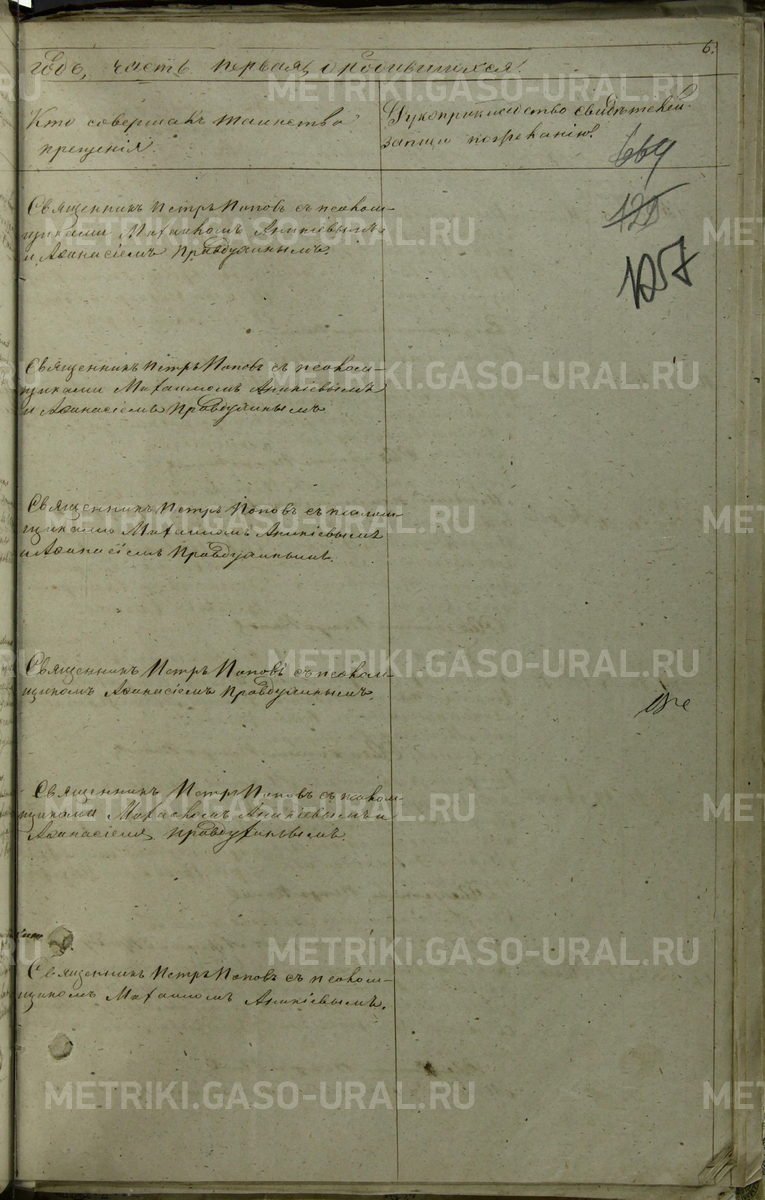 6.
годъ, часть первая, о родившихся.
Кто совершалъ таинство
крещенія.
Рукоприкладство свидѣтелей
записи по желанію.
669
125
127
Священникъ Петръ Поповъ съ псалом-
щиками Михаиломъ Аникіевымъ
и Аѳанасіемъ Правдухинымъ.
Священникъ Петръ Поповъ съ псалом-
щиками Михаиломъ Аникіевымъ
и Аѳанасіемъ Правдухинымъ
Священникъ Петръ Поповъ съ псалом-
щиками Михаиломъ Аникіевымъ
и Аѳанасіемъ Правдухинымъ.
Священникъ Петръ Поповъ съ псалом-
щикомъ Аѳанасіемъ Правдухинымъ.
Священникъ Петръ Поповъ съ псалом-
щиками Михаиломъ Аникіевымъ и
Аѳанасіемъ Правдухинымъ.
Священникъ Петръ Поповъ съ псалом-
щикомъ Михаиломъ Аникіевымъ.
METRIKI.GASO-URAL.RU